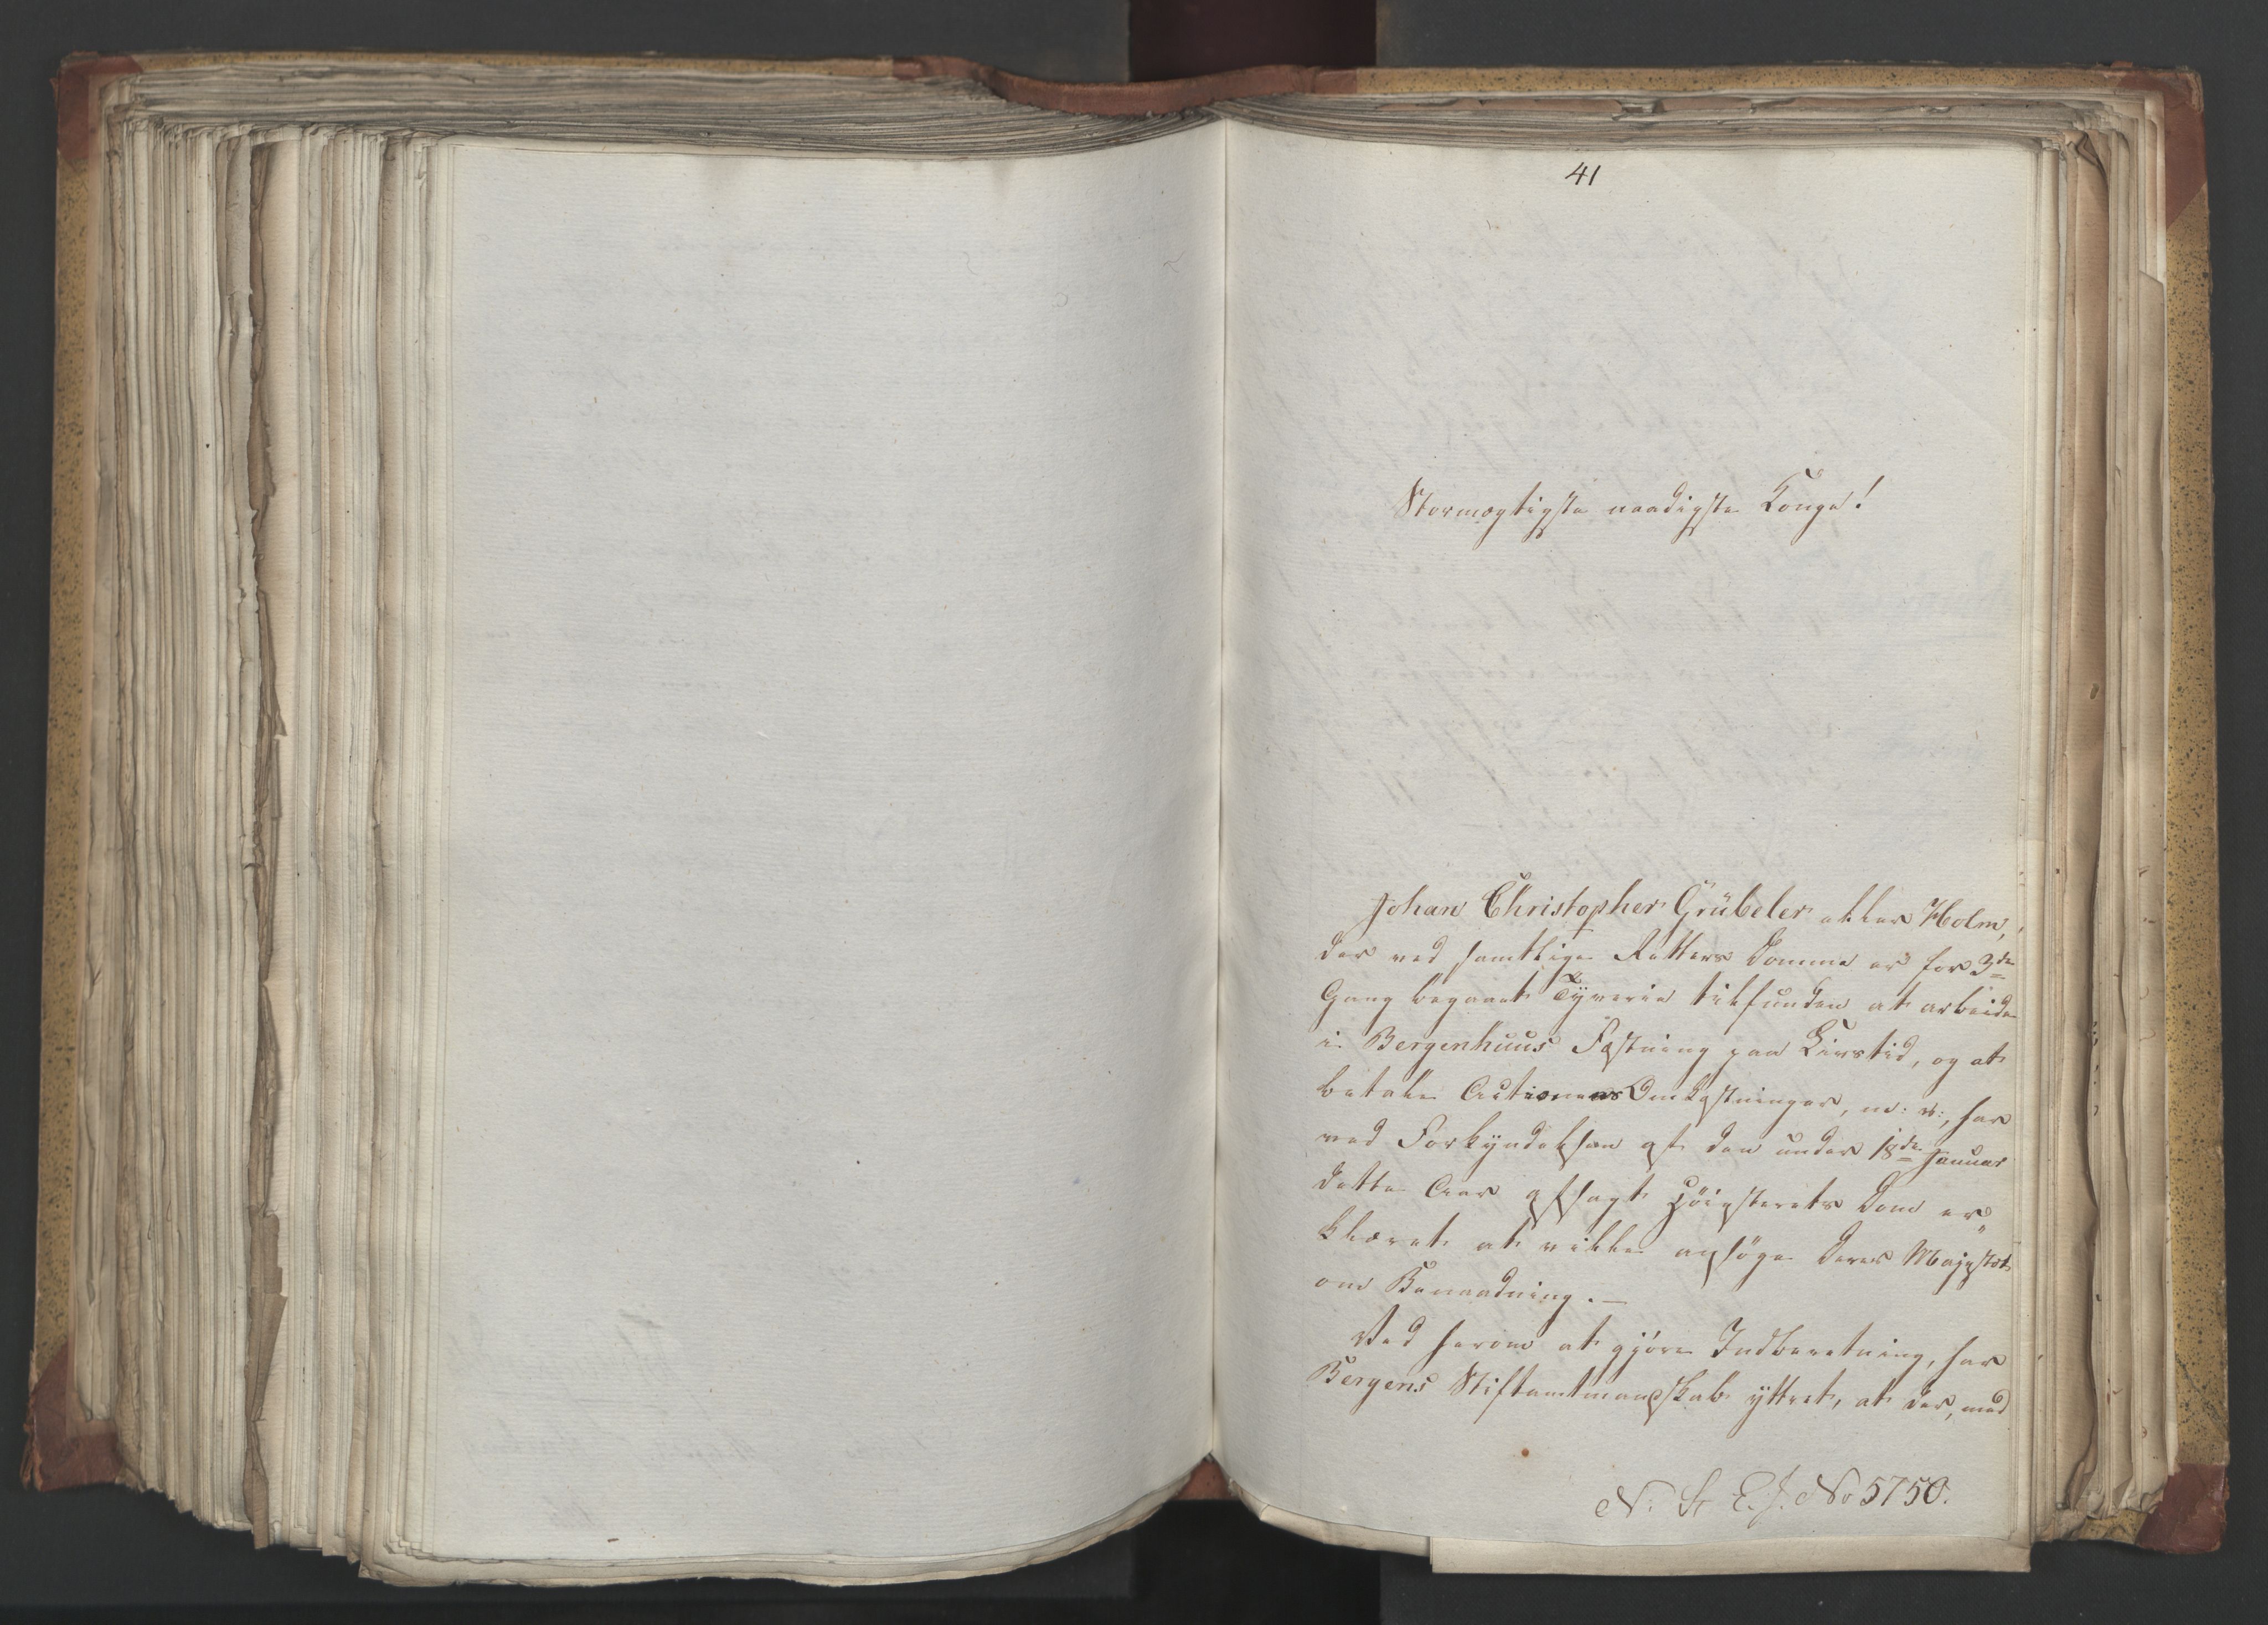 41
Stormægtigste naadigste Konge!
Johan Christopher Grübeler eller Holm,
der ved samtlige Retters Domme er for 3de
Gang begaaet Tyverie tilfunden at arbeide
i Bergenhuus Fæstning paa Livstid, og at
betale Actionens Omkostninger, m: v:, har
ved Forkyndelsen af den under 18de Januar
dette Aar afsagt Høiesterets Dom er„
klæret at ville ansøge Deres Majestæt
om Benaadning. —
Ved herom at gjøre Indberetning, har
Bergens Stiftamtmandskab yttret, at der, med
N: St E. J. No 5750.